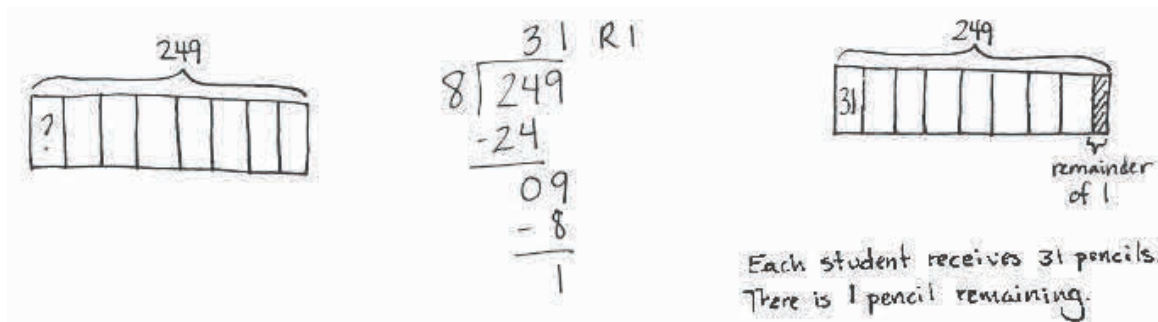 249
?
31 R1
8 249
-24
09
- 8
1
249
31
remainder
of 1
Each student receives 31 pencils.
There is 1 pencil remaining.